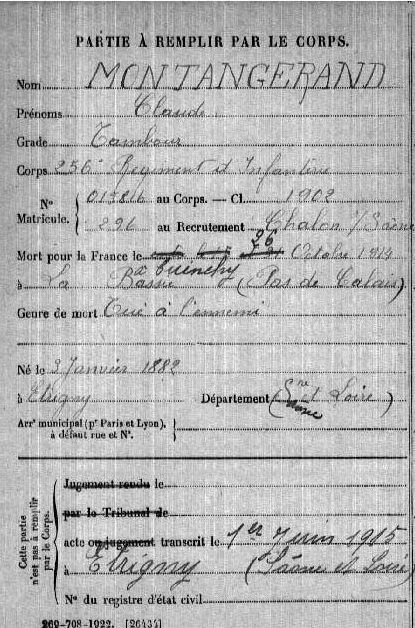 PARTIE À REMPLIR PAR LE CORPS.
Nom MONTANGERAND
Prénoms Claude
Grade Tambour
Corps 256e Régiment d'Infanterie
N° Matricule. 013816 au Corps. — Cl. 1902
296 au Recrutement Chalon s/ Saône
Mort pour la France le 26 Octobre 1914
à Cuinchy
à La Bassée (Pas de Calais)
Genre de mort Tué à l'ennemi
Né le 3 Janvier 1882
à Etrigny Département (Sne et Loire)
Saône
Arrt municipal (pr Paris et Lyon),
à défaut rue et N°.
Cette partie n'est pas à remplir par le Corps.
Jugement rendu le
par le Tribunal de
acte ou jugement transcrit le 1er Juin 1915
à Etrigny (Saône et Loire)
N° du registre d'état civil
269-708-1922. [26434]